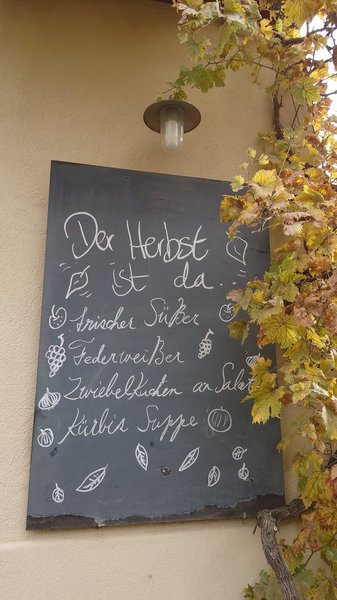 Der Herbst
ist da.
frischer Süßer
Federweißer
Zwiebelkuchen an Salat
Kürbis Suppe